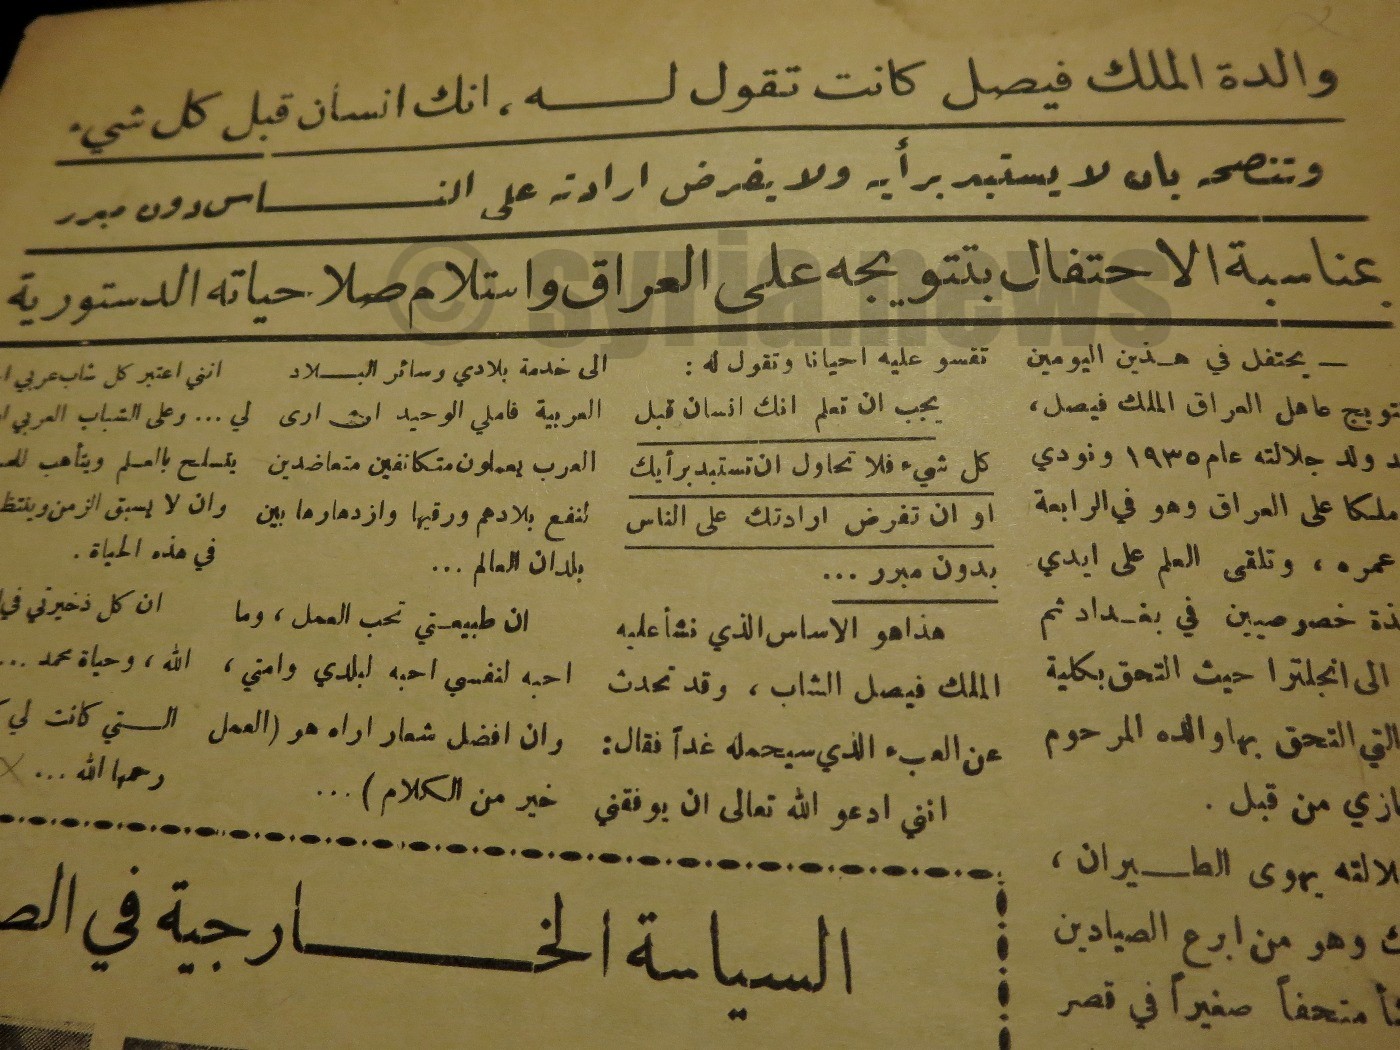 والدة الملك فيصل كانت تقول لـــه ، انك انسان قبل كل شيء
وتنصحه بان لا يستبد برأيه ولا يفرض ارادته على النـــاس دون مبرر
بمناسبة الاحتفال بتتويجه على العراق واستلام صلاحياته الدستورية
© syria.news
— يحتفل في هـذين اليومين
عاهل العراق الملك فيصل ،
ولد جلالته عام ١٩٣٥ ونودي
ملكا على العراق وهو في الرابعة
عمره ، وتلقى العلم على ايدي
خصوصيين في بغـداد ثم
الى انجلترا حيث التحق بكلية
التي التحق بها والده المرحوم
من قبل .
يهوى الطـيران ،
وهو من ابرع الصيادين
متحفاً صغيراً في قصر
تقسو عليه احيانا وتقول له :
يجب ان تعلم انك انسان قبل
كل شيء فلا تحاول ان تستبد برأيك
او ان تفرض ارادتك على الناس
بدون مبرر ...
هذا هو الاساس الذي نشأ عليه
الملك فيصل الشاب ، وقد تحدث
عن العبء الذي سيحمله غداً فقال :
انني ادعو الله تعالى ان يوفقني
الى خدمة بلادي وسائر البـلاد
العربية فاملي الوحيد ان ارى
العرب يعملون متكاتفين متعاضدين
لنفع بلادهم ورقيها وازدهارها بين
بلدان العالم ...
ان طبيعـتي تحب العمل ، وما
احبه لنفسي احبه لبلدي وامتي ،
وان افضل شعار اراه هو ( العمل
خير من الكلام ) ...
انني اعتبر كل شاب عربي
لي ... وعلى الشباب العربي
يتسلح بالعـلم ويتأهب
وان لا يسبق الزمن
في هذه الحياة .
ان كل ذخيرتي
الله ، وحياة محمد ...
الـتي كانت لي
رحمها الله ...
السياسة الخـــارجية في